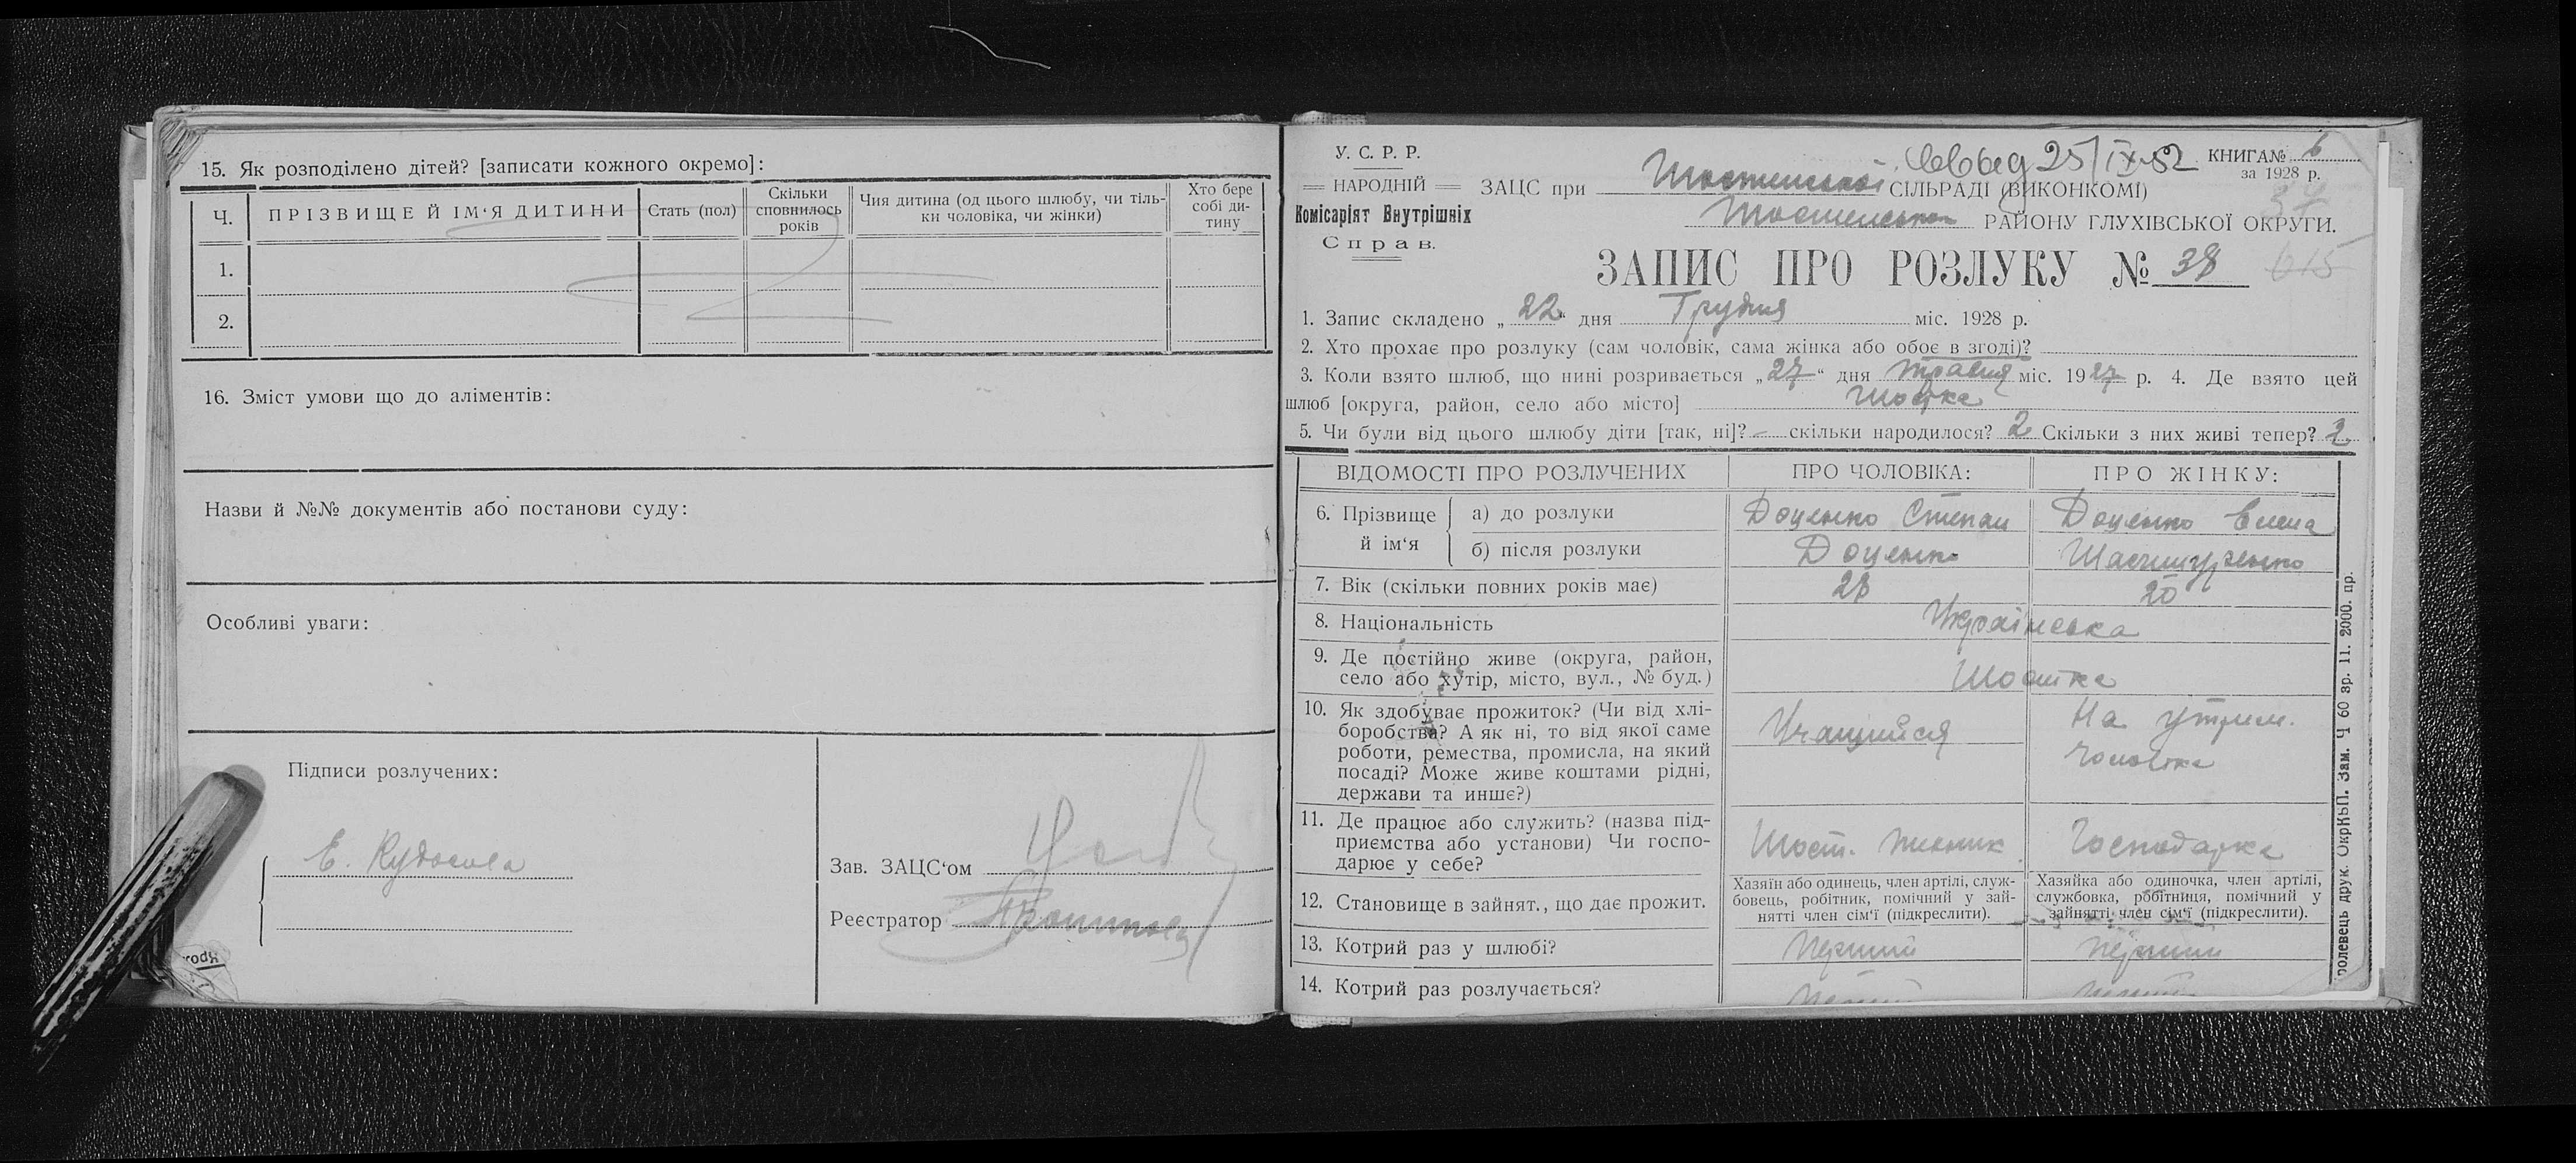 15. Як розподілено дітей? [записати кожного окремо]:
Ч.
ПРІЗВИЩЕ Й ІМ‘Я ДИТИНИ
Стать (пол)
Скільки
сповнилось
років
Чия дитина (од цього шлюбу, чи тіль-
ки чоловіка, чи жінки)
Хто бере
собі ди-
тину
1.
2.
16. Зміст умови що до аліментів:
Назви й №№ документів або постанови суду:
Особливі уваги:
Підписи розлучених:
Е.
Зав. ЗАЦС‘ом
Реєстратор
У. С. Р. Р.
НАРОДНІЙ
Комісаріят Внутрішніх
Справ.
25/IX-52
КНИГА№ 6
за 1928 р.
ЗАЦС при Шостенській СІЛЬРАДІ (ВИКОНКОМІ)
Шостенського РАЙОНУ ГЛУХІВСЬКОЇ ОКРУГИ.
37
ЗАПИС ПРО РОЗЛУКУ № 38
615
1. Запис складено „22“ дня Грудня міс. 1928 р.
2. Хто прохає про розлуку (сам чоловік, сама жінка або обоє в згоді)?
3. Коли взято шлюб, що нині розривається „27“ дня травня міс. 1927 р. 4. Де взято цей
шлюб [округа, район, село або місто] Шостка
5. Чи були від цього шлюбу діти [так, ні]? — скільки народилося? 2 Скільки з них живі тепер? 2
ВІДОМОСТІ ПРО РОЗЛУЧЕНИХ
ПРО ЧОЛОВІКА:
ПРО ЖІНКУ:
6. Прізвище
й ім‘я
а) до розлуки
Доценко Степан
Доценко Елена
б) після розлуки
Доценко
7. Вік (скільки повних років має)
28
20
8. Національність
Українська
9. Де постійно живе (округа, район,
село або хутір, місто, вул., № буд.)
Шостка
10. Як здобуває прожиток? (Чи від хлі-
боробства? А як ні, то від якої саме
роботи, ремества, промисла, на який
посаді? Може живе коштами рідні,
держави та инше?)
Учащийся
На утрим.
чоловіка
11. Де працює або служить? (назва під-
приємства або установи) Чи госпо-
дарює у себе?
Шост.
Господарка
12. Становище в зайнят., що дає прожит.
Хазяїн або одинець, член артілі, служ-
бовець, робітник, помічний у зай-
нятті член сім‘ї (підкреслити).
Хазяйка або одиночка, член артілі,
службовка, робітниця, помічний у
зайнятті член сім‘ї (підкреслити).
13. Котрий раз у шлюбі?
Перший
Перший
14. Котрий раз розлучається?
ролевець друк. ОкрКЬП. Зам. Ч 60 зр. 11. 2000. пр.